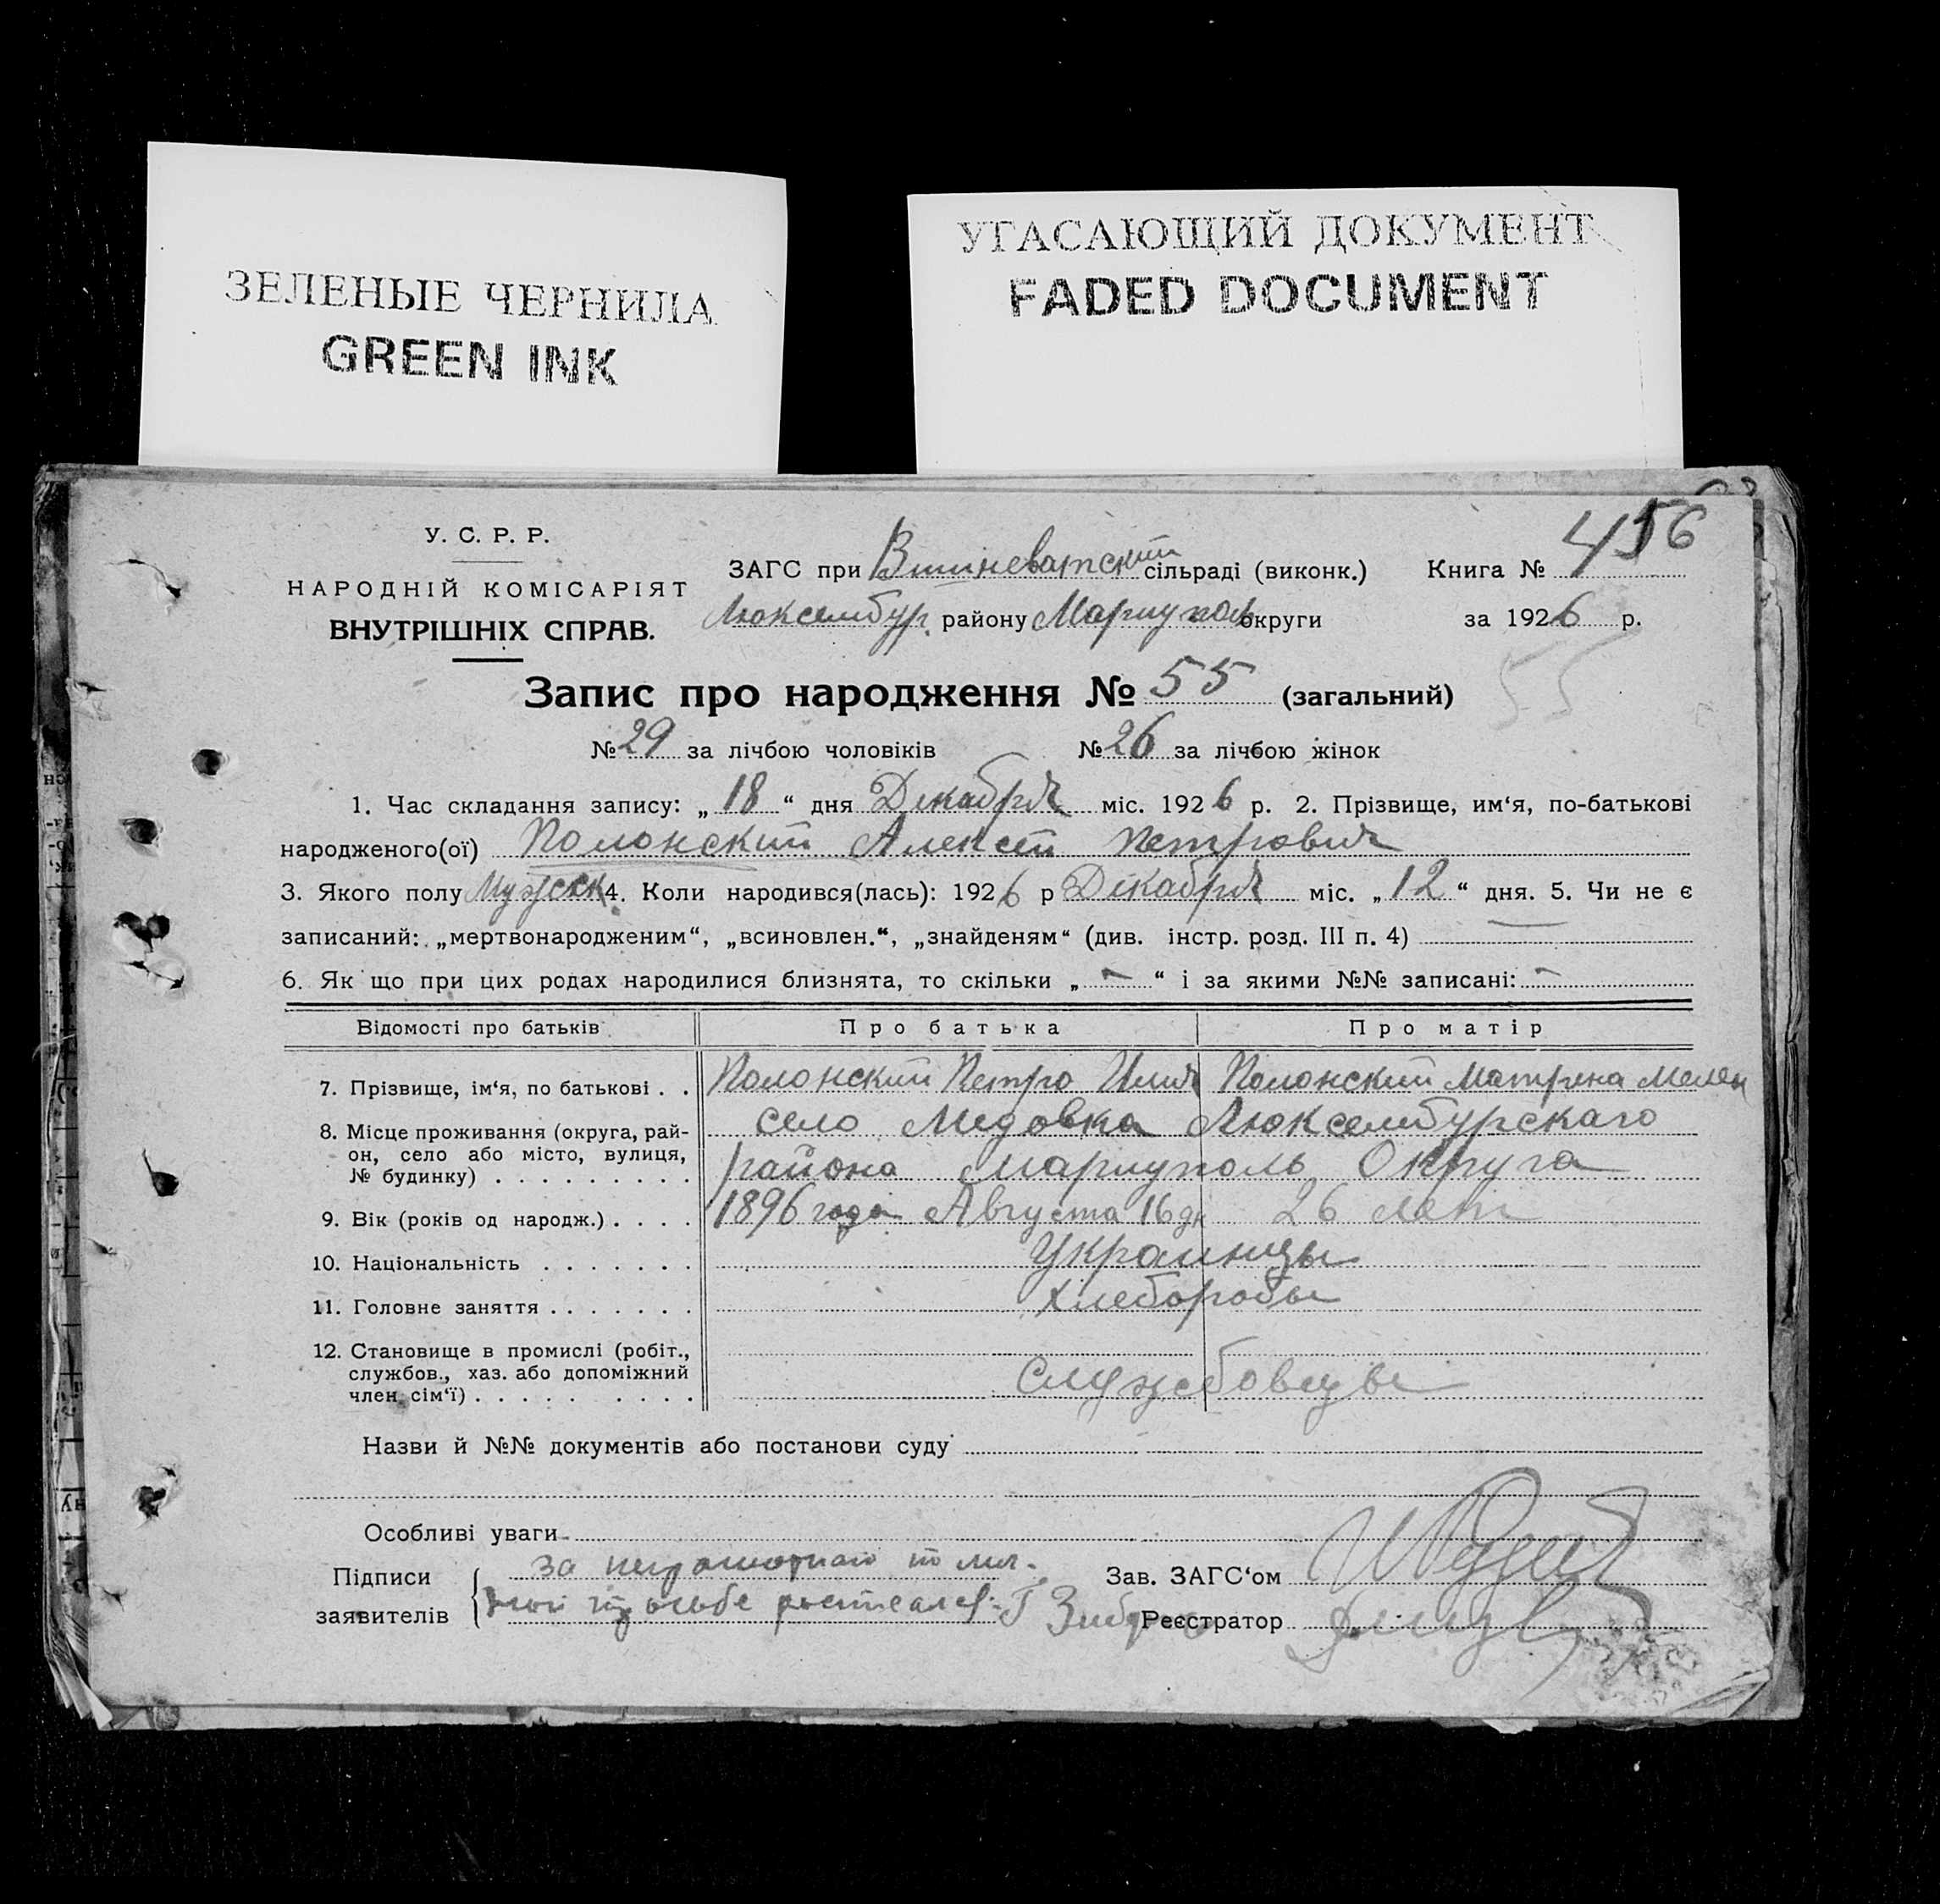 ЗЕЛЕНЫЕ ЧЕРНИЛА
GREEN INK
УГАСАЮЩИЙ ДОКУМЕНТ
FADED DOCUMENT
У. С. Р. Р.
НАРОДНІЙ КОМІСАРІЯТ
ВНУТРІШНІХ СПРАВ.
ЗАГС при Вишневатский сільраді (виконк.) Книга № 456
Люксембур. району Мариуполь округи за 1926 р.
Запис про народження № 55 (загальний) 55
№ 29 за лічбою чоловіків № 26 за лічбою жінок
1. Час складання запису: „ 18 “ дня Декабря міс. 1926 р. 2. Прізвище, им‘я, по-батькові
народженого(ої) Полонский Алексей Петрович
3. Якого полу Мужск 4. Коли народився(лась): 1926 р Декабря міс. „ 12 “ дня. 5. Чи не є
записаний: „мертвонародженим“, „всиновлен.“, „знайденям“ (див. інстр. розд. III п. 4) —
6. Як що при цих родах народилися близнята, то скільки „ — “ і за якими №№ записані: —
Відомості про батьків Про батька Про матір
7. Прізвище, ім‘я, по батькові . . Полонский Петро Илич Полонский Матрена Мелен
8. Місце проживання (округа, рай-
он, село або місто, вулиця,
№ будинку) . . . . . . . . .
село Медовка Люксембурскаго
района Мариуполь Округа
9. Вік (років од народж.) . . . . 1896 года Августа 16 дн 26 лет
10. Національність . . . . . . . Украинцы
11. Головне заняття . . . . . . . Хлеборобы
12. Становище в промислі (робіт.,
службов., хаз. або допоміжний
член. сім‘ї) . . . . . . . . . .
Служебовцы
Назви й №№ документів або постанови суду
Особливі уваги
Підписи
заявителів
за неграмотнаго по лич-
ной просьбе
Зав. ЗАГС‘ом
Реєстратор